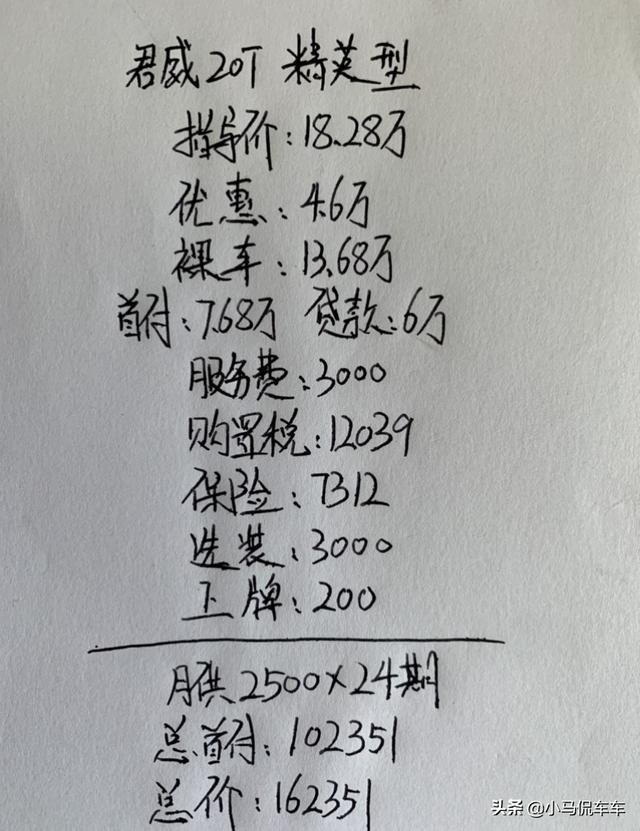 君威20T 精英型
指导价:18.28万
优惠:4.6万
裸车:13.68万
首付:7.68万 贷款:6万
服务费:3000
购置税:12039
保险:7312
选装:3000
上牌:200
月供2500×24期
总首付:102351
总价:162351
头条 @小马侃车车